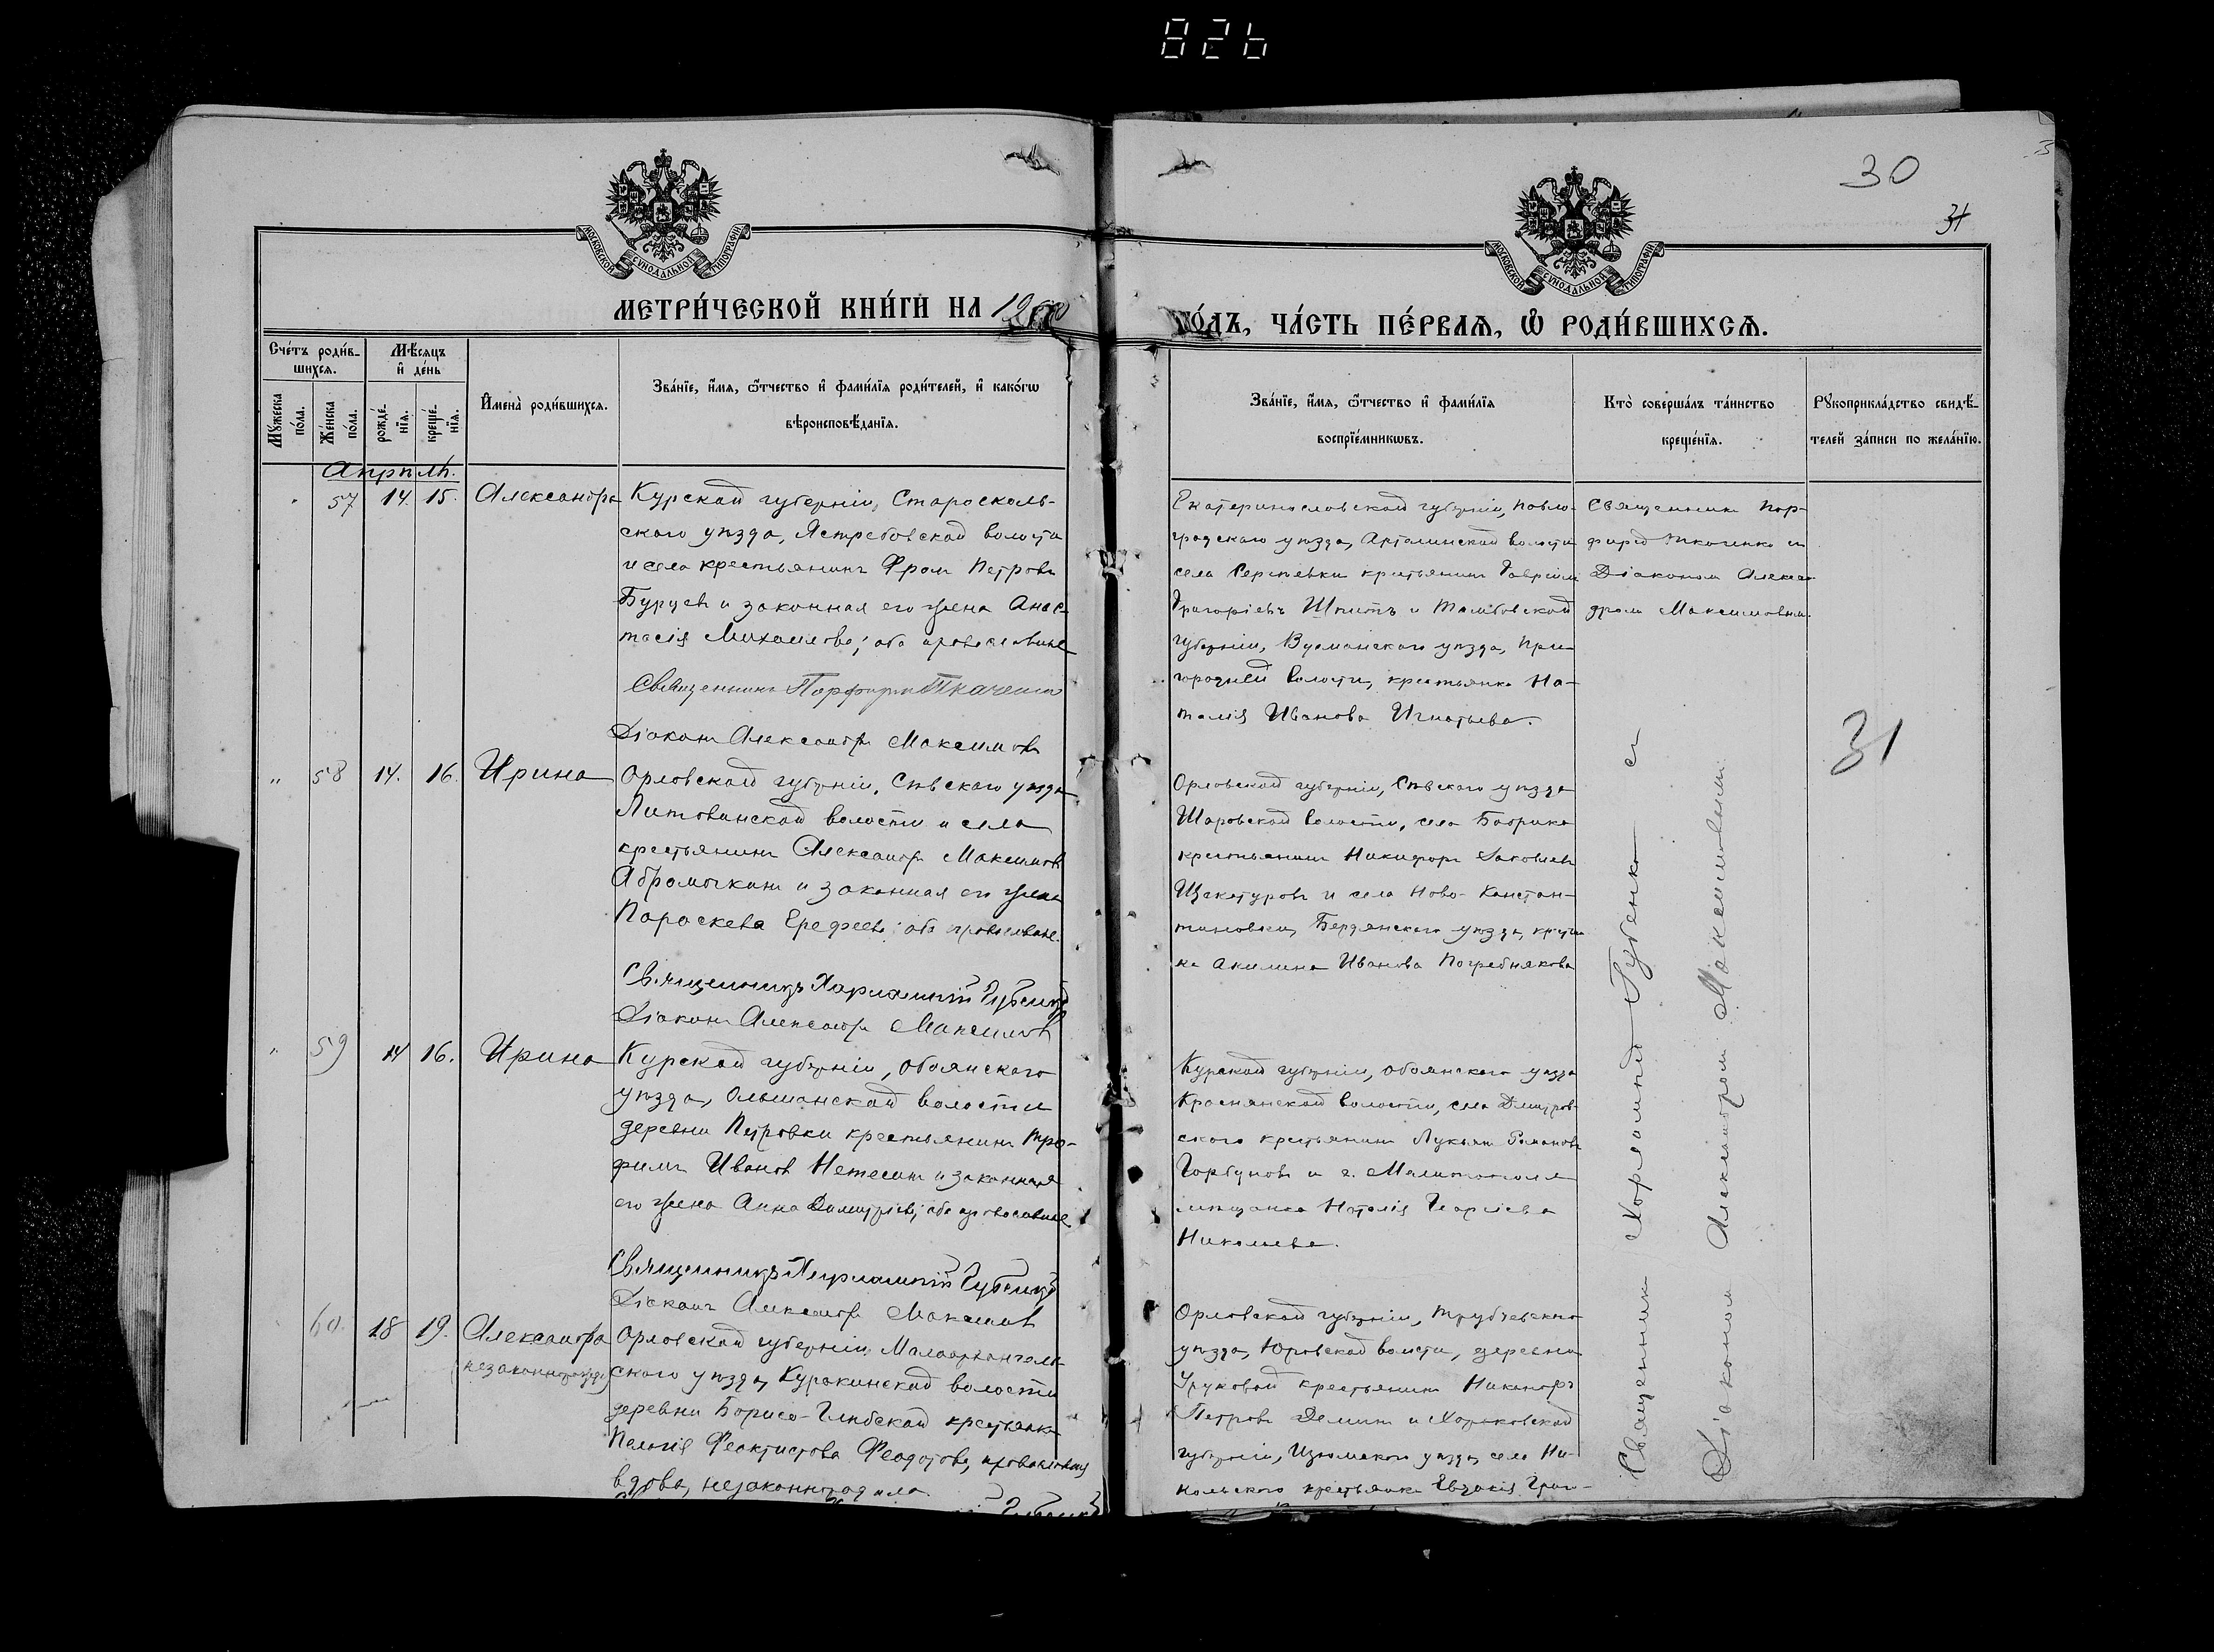 826
30
31
МОСКОВСКОЙ СѴНОДАЛЬНОЙ ТИПОГРАФІИ
МОСКОВСКОЙ СѴНОДАЛЬНОЙ ТИПОГРАФІИ
МЕТРИ́ЧЕСКОЙ КНИ́ГИ НА 19
ГО́ДЪ, ЧА́СТЬ ПЕ́РВАѦ, Ѽ РОДИ́ВШИХСѦ.
Сче́тъ роди́в-
шихсѧ.
Мꙋ́жеска по́ла.
Же́нска по́ла.
Мѣ́сѧцъ
и҆ де́нь
рожде́-
нїѧ.
креще́-
нїѧ.
И҆мена̀ роди́вшихсѧ.
Зва́нїе, и҆́мѧ, ѻ҆́тчество и҆ фами́лїѧ роди́телей, и҆ како́гѡ
вѣроисповѣ́данїѧ.
Зва́нїе, и҆́мѧ, ѻ҆́тчество и҆ фами́лїѧ
воспрїе́мникѡвъ.
Кто̀ соверша́лъ та́инство
креще́нїѧ.
Рꙋкоприкла́дство свидѣ́-
телей за́писи по жела́нїю.
Апрѣль.
57 14. 15. Александра
Курской губерніи, Староскель-
скаго уѣзда, Ястребовской волости
и села крестьянинъ Фролъ Петровъ
Бурцевъ и законная его жена Анас-
тасія Михаилова; оба православные
Священникъ Порфирій Ткаченко
Діаконъ Александръ Максимовъ
Екатеринославской губерніи, Павло-
градскаго уѣзда, волости
села Сергѣевки крестьянинъ Гавріилъ
Григорьевъ Шпитъ и Тамбовской
губерніи, Усманскаго уѣзда, При-
городней волости, крестьянка На-
талія Иванова Игнатьева.
Священникъ Пор-
фирій Ткаченко съ
Діакономъ Алексан-
дромъ Максимовымъ.
„ 58 14. 16. Ирина
Орловской губерніи, Сѣвскаго уѣзда
Литовинской волости и села
крестьянинъ Александръ Максимовъ
Абрамочкинъ и законная его жена
Параскева Ерофеева; оба православные.
Священникъ Харлампій Губенко
Діаконъ Александръ Максимовъ
Орловской губерніи, Сѣвскаго уѣзда
Шаровской волости, села Бобрика
крестьянинъ Никифоръ Яковлевъ
Щекатуровъ и села Ново-Констан-
тиновки, Бердянскаго уѣзда, крестьян-
ка Акилина Иванова Погребнякова
31
„ 59 14 16. Ирина
Курской губерніи, Обоянскаго
уѣзда, Ольшанской волости
деревни Петровки крестьянинъ Тро-
фимъ Ивановъ и законная
его жена Анна Димитріева; оба православные
Священникъ Харлампій Губенко
Діаконъ Александръ Максимовъ
Курской губерніи, Обоянскаго уѣзда
Краснянской волости, села Дмитров-
скаго крестьянинъ Лукьянъ Романовъ
Горбуновъ и г. Мелитополя
мѣщанка Наталія Георгіева
Николаева.
60. 18 19. Александра
(незаконнорожд)
Орловской губерніи, Малоархангель-
скаго уѣзда, Куракинской волости
деревни Борисо-Глѣбской крестьянка
Пелагія Феоктистова Федотова, православная
вдова, незаконнорадила
Орловской губерніи, Трубчевскаго
уѣзда, Юровской волости, деревни
крестьянинъ Никаноръ
Петровъ Деминъ и Харьковской
губерніи, Изюмскаго уѣзда, села Ни-
кольского крестьянка Евдокія Григо-
Священникъ Харлампій Губенко съ
Діакономъ Александромъ Максимовымъ.